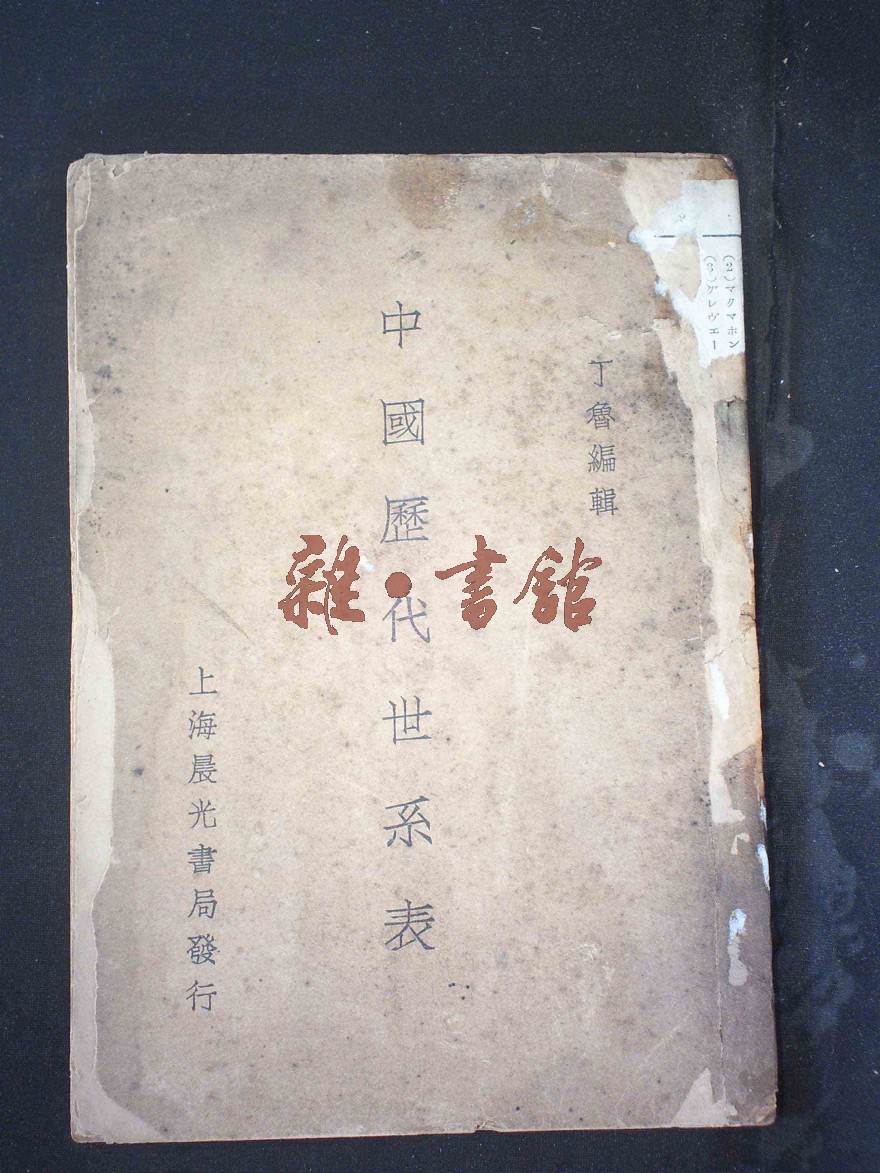 (2)マクマホン
(3)グレヴエー
丁魯編輯
中國歷代世系表
上海晨光書局發行
雜·書館